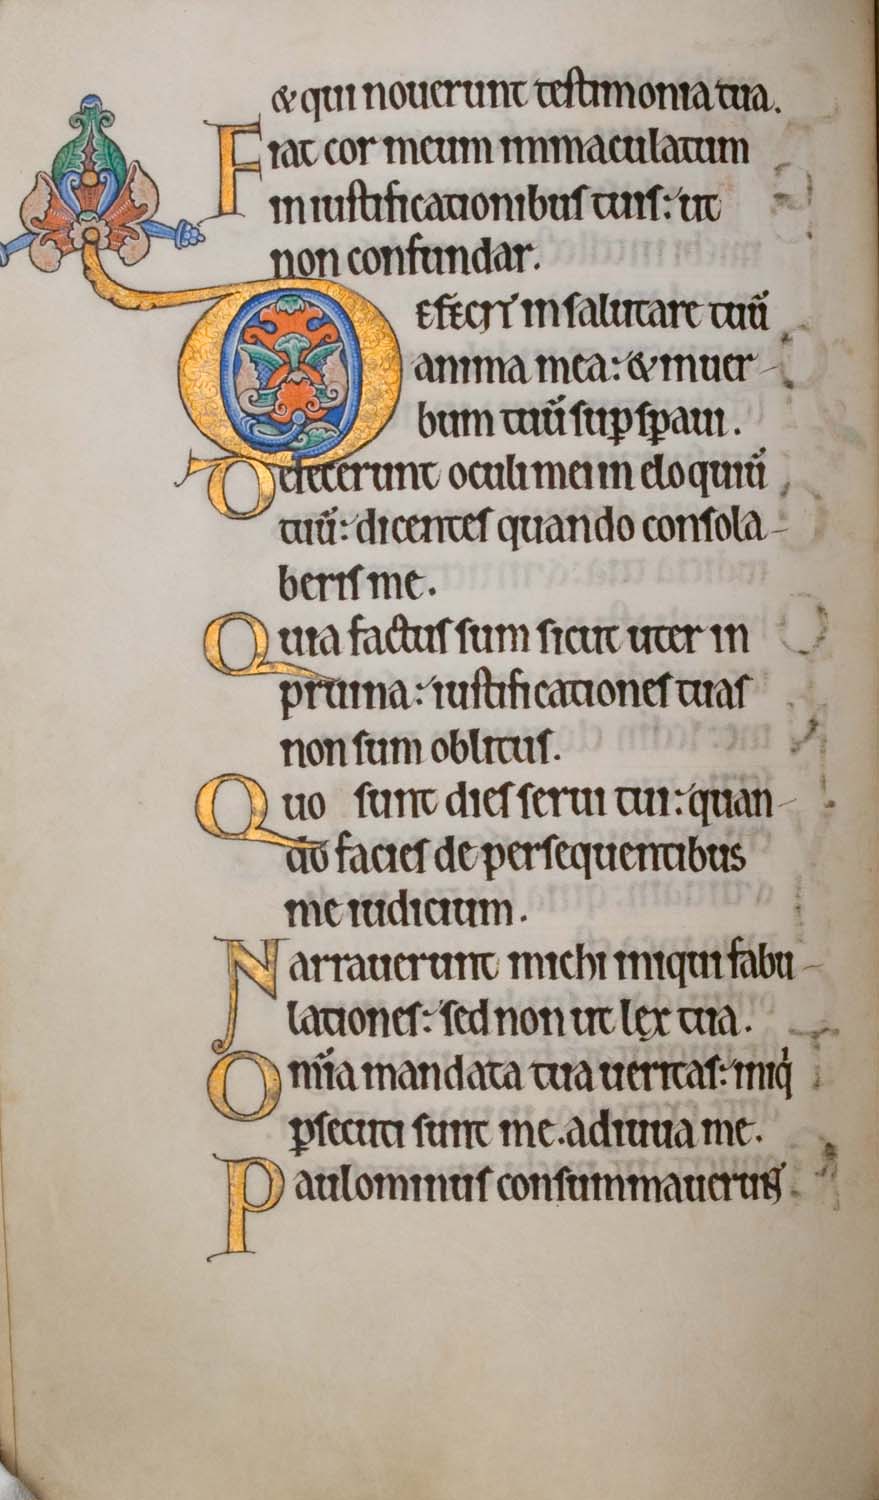 & qui nouerunt testimonia tua.
Fiat cor meum immaculatum
in iustificationibus tuis: ut
non confundar.
Defecit in salutare tuū
anima mea: & in uer-
bum tuū sup sꝑaui.
Defecerunt oculi mei in eloquiū
tuū: dicentes quando consola-
beris me.
Quia factus sum sicut uter in
pruina: iustificationes tuas
non sum oblitus.
Quo sunt dies serui tui: quan-
do facies de persequentibus
me iudicium.
Narrauerunt michi iniqui fabu-
lationes: sed non ut lex tua.
Om̄ia mandata tua ueritas: iniqͥ
ꝑsecuti sunt me. adiuua me.
Paulominus consummauerunt